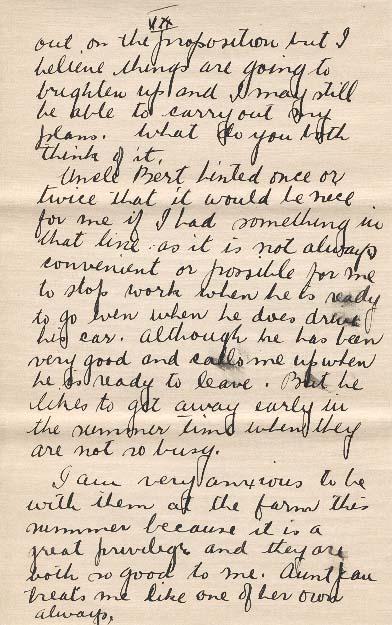 VII
out on the proposition but I
believe things are going to
brighten up and I may still
be able to carry out my
plans. What do you both
think of it.
Uncle Bert hinted once or
twice that it would be nice
for me if I had something in
that line as it is not always
convenient or possible for me
to stop work when he is ready
to go even when he does drive
his car. Although he has been
very good and calls me up when
he is ready to leave. But he
likes to get away early in
the summer time when they
are not so busy.
I am very anxious to be
with them at the farm this
summer because it is a
great privilege and they are
both so good to me. Aunt
treats me like one of her own
always.